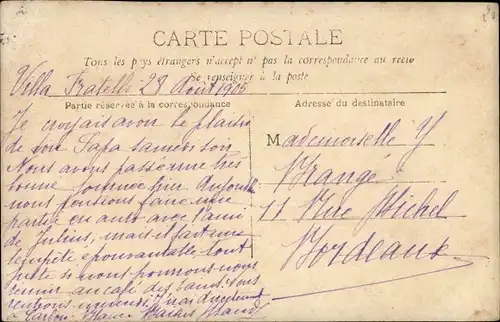 CARTE POSTALE
Tous les pays étrangers n'accept nt pas la correspondance au recto
Se renseigner à la poste
Villa Fratelli 28 Août 1905
Partie réservée à la correspondance
Je croyais avoir le plaisir
de voir Papa samedi soir
Nous avons passé une très
bonne journée hier
nous pensions faire une
partie en auto avec l'ami
de Julius, mais il fait une
tempête épouvantable, tout
juste si nous pourrons nous
tenir au café des bains
Adresse du destinataire
Mademoiselle Y
Brangé
11 Rue Michel
Bordeaux